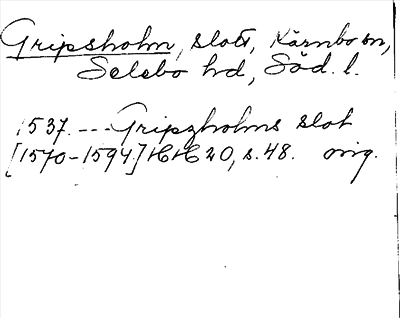 Gripsholm, slott, Kärnbo sn,
Selebo hd, Söd. l.
1537. --- Gripzholms slot
[1570-1594] HH 20, s. 48. orig.